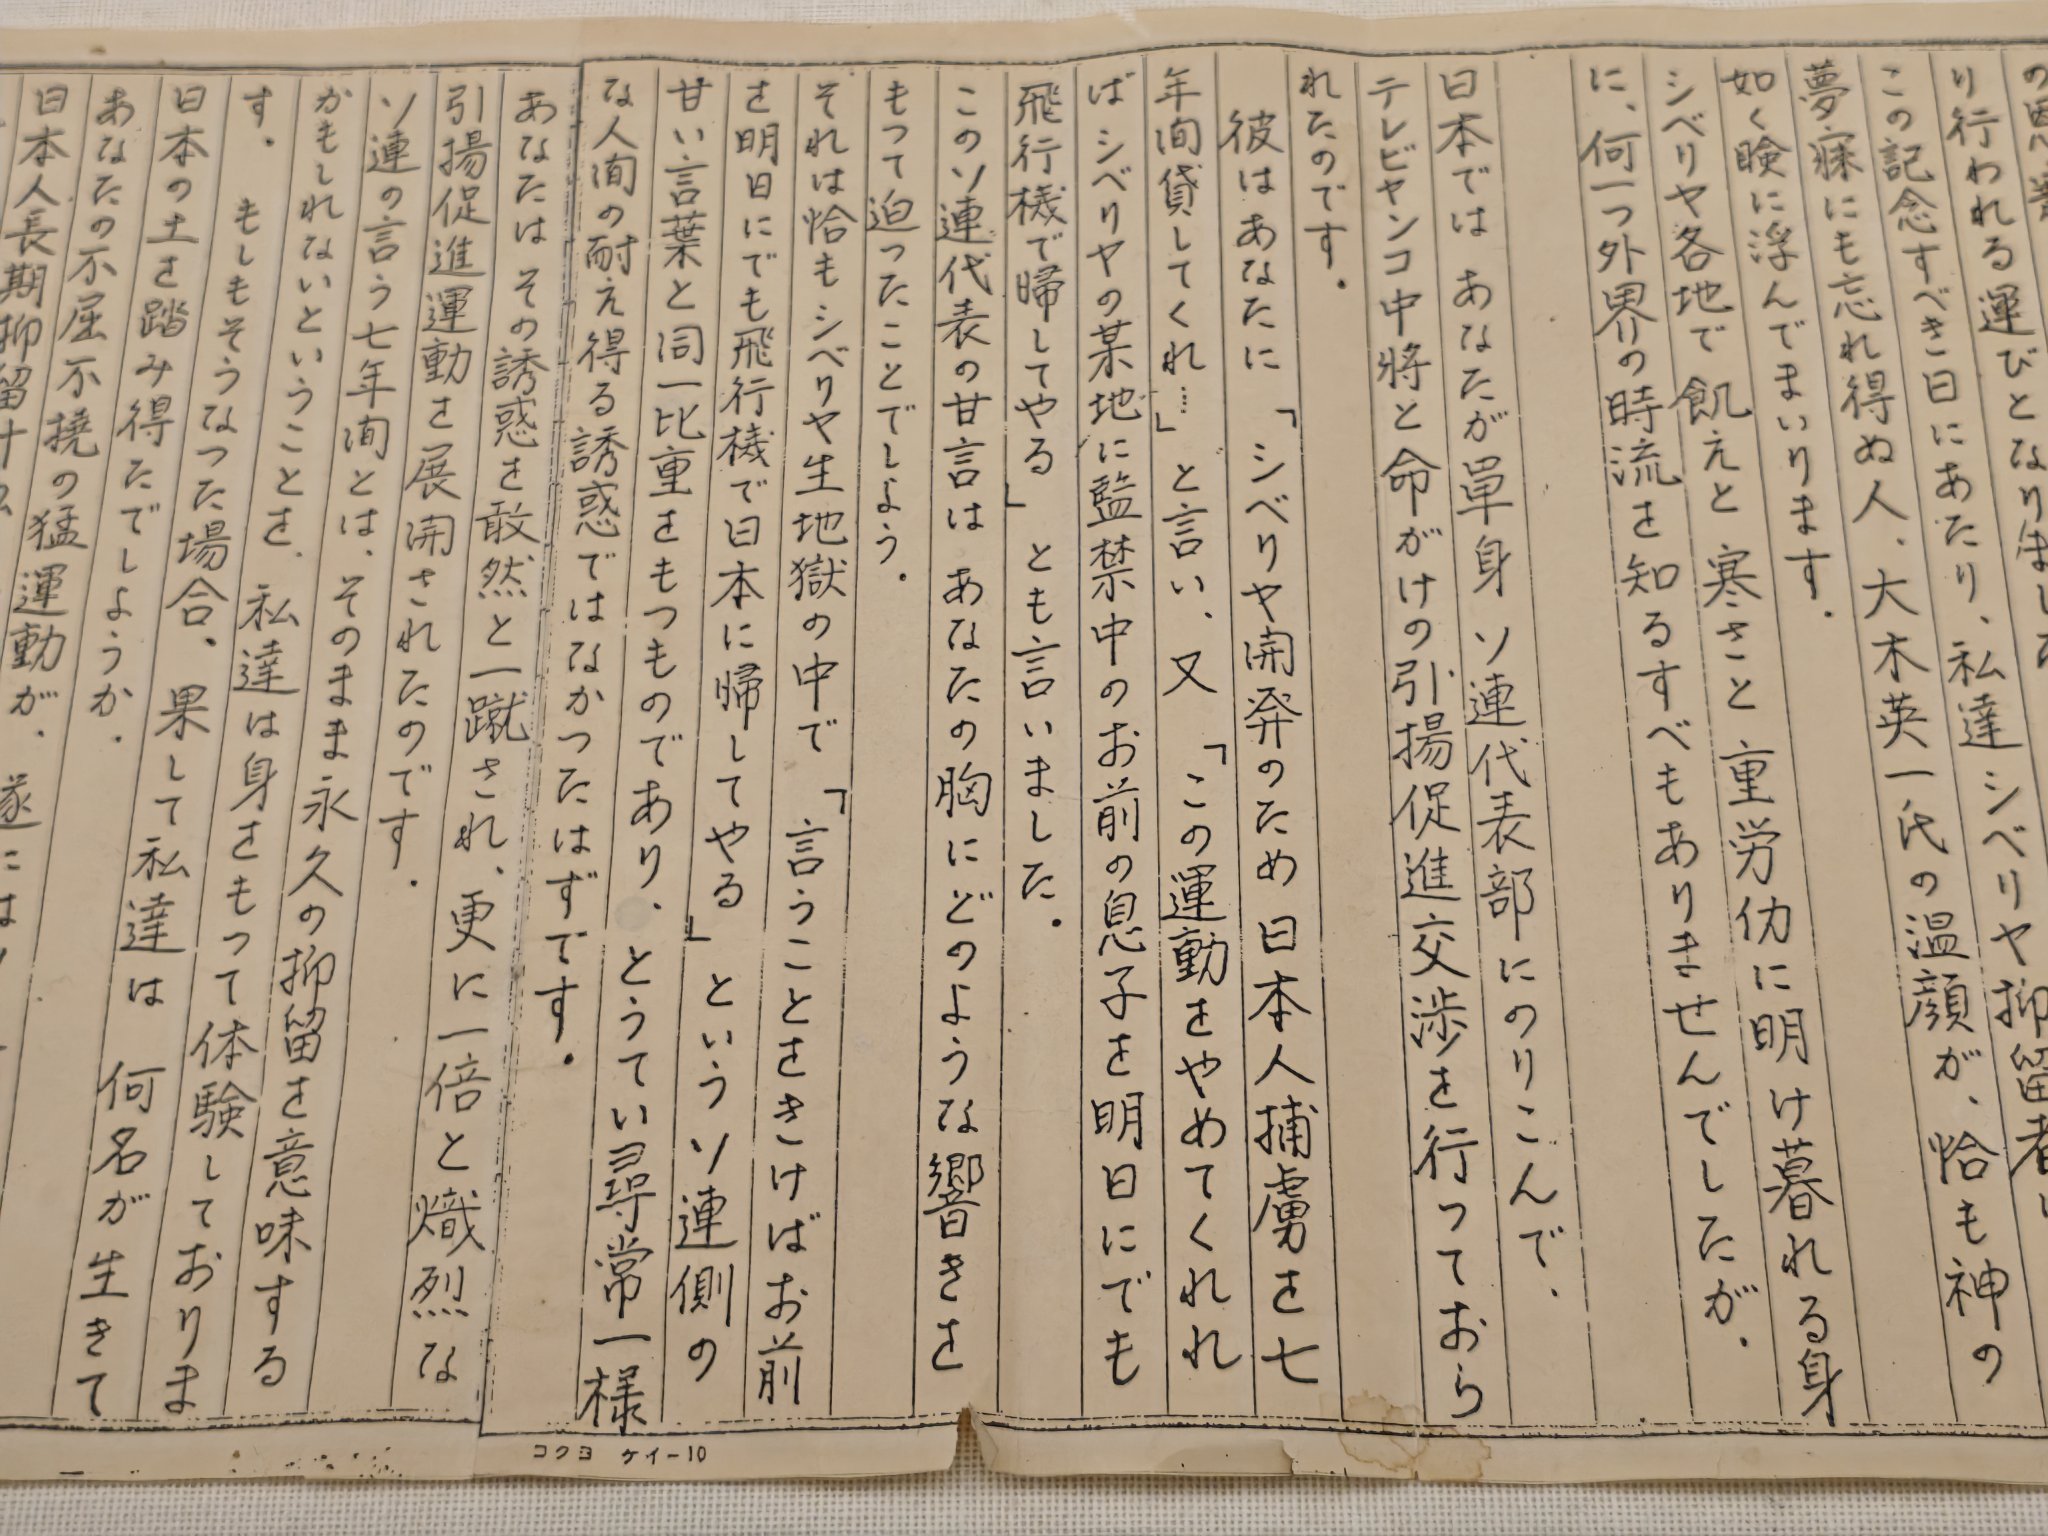 り行われる運びとなりました
この記念すべき日にあたり、私達シベリヤ抑留者に
夢寐にも忘れ得ぬ人、大木英一氏の温顔が、恰も神の
如く瞼に浮んでまいります.
シベリヤ各地で飢えと寒さと重労仂に明け暮れる身
に、何一つ外界の時流を知るすべもありませんでしたが.
日本では あなたが単身ソ連代表部にのりこんで.
テレビヤンコ中將と命がけの引揚促進交渉を行っておら
れたのです.
彼はあなたに「シベリヤ開発のため日本人捕虜を七
年間貸してくれ…」と言い、又「この運動をやめてくれれ
ばシベリヤの某地に監禁中のお前の息子を明日にでも
飛行機で帰してやる」とも言いました.
このソ連代表の甘言は あなたの胸にどのような響きを
もって迫ったことでしよう.
それは恰もシベリヤ生地獄の中で「言うことをきけばお前
を明日にでも飛行機で日本に帰してやる」というソ連側の
甘い言葉と同一比重をもつものであり、とうてい尋常一様
な人間の耐え得る誘惑ではなかったはずです.
あなたは その誘惑を敢然と一蹴され、更に一倍と熾烈な
引揚促進運動を展開されたのです.
ソ連の言う七年間とは、そのまま永久の抑留を意味する
かもしれないということを、私達は身をもって体験しておりま
す. もしもそうなった場合、果して私達は 何名が生きて
日本の土を踏み得たでしようか.
あなたの不屈不撓の猛運動が. 遂には
日本人長期抑留
コクヨ ケイ-10